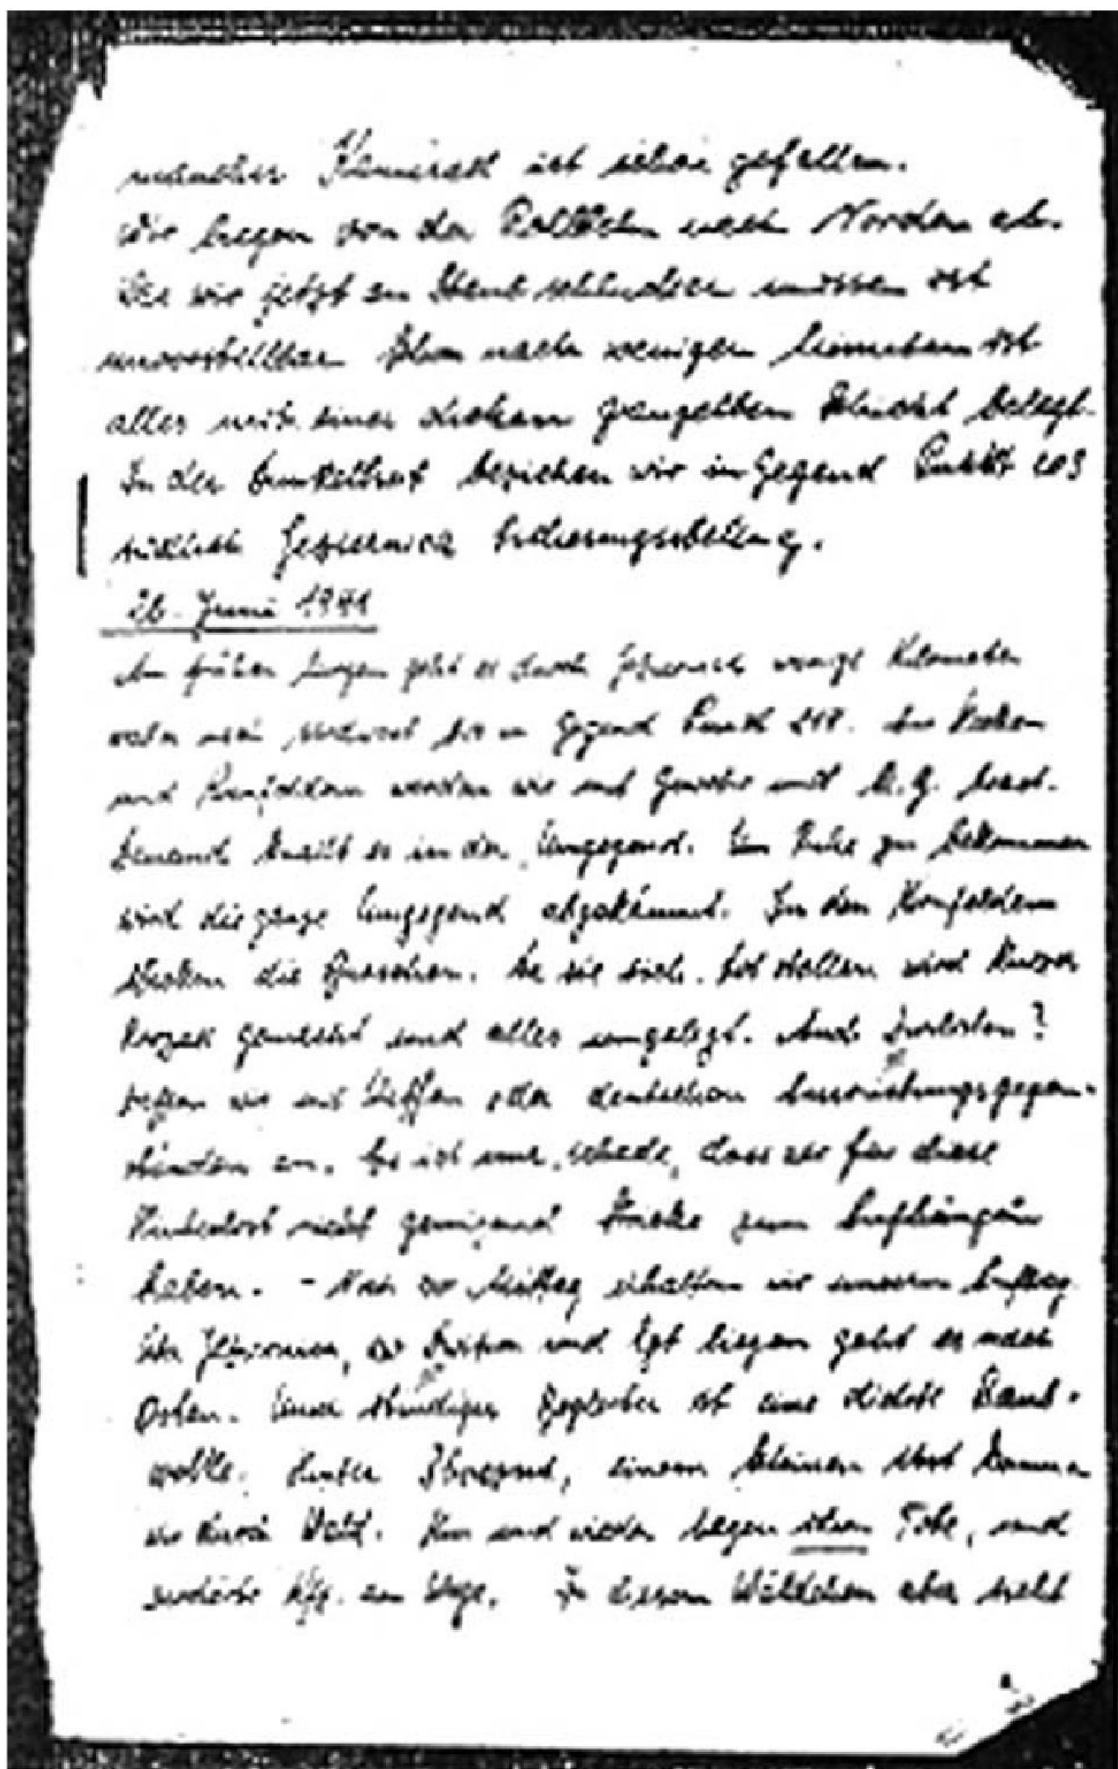 mancher Kamerad ist schon gefallen.
Wir biegen von der Rollbahn nach Norden ab.
Was wir jetzt an Staub schlucken müssen ist
unvorstellbar. Schon nach wenigen Minuten ist
alles mit einer dicken graugelben Schicht belegt.
In der Dunkelheit beziehen wir in Gegend Punkt 203
südlich Jeziernica Sicherungsstellung.
26. Juni 1941
Am frühen Morgen geht es durch wenige Kilometer
weiter nach bis in Gegend Punkt 217. Aus Hecken
und Kornfeldern werden wir mit Gewehr und M.G. besch.
Dauernd knallt es in der Umgegend. Um Ruhe zu bekommen
wird die ganze Umgegend abgekämmt. In den Kornfeldern
stecken die Burschen. Da sie sich tot stellen wird kurzer
Prozess gemacht und alles umgelegt. Auch Zivilisten?
treffen wir mit Waffen oder deutschen Ausrüstungsgegen-
ständen an. Es ist nur schade, dass wir für diese
nicht genügend Stricke zum Aufhängen
haben. - Noch vor Mittag erhalten wir unseren Auftrag.
wo Division und Rgt liegen geht es nach
Osten. Unser ständiger Begleiter ist eine dicke Staub-
wolke. Hinter einem kleinen Ort kommen
wir durch Wald. Hin und wieder liegen ihre Tote, und
zerstörte Kfz. am Wege. In diesem Wäldchen aber sieht